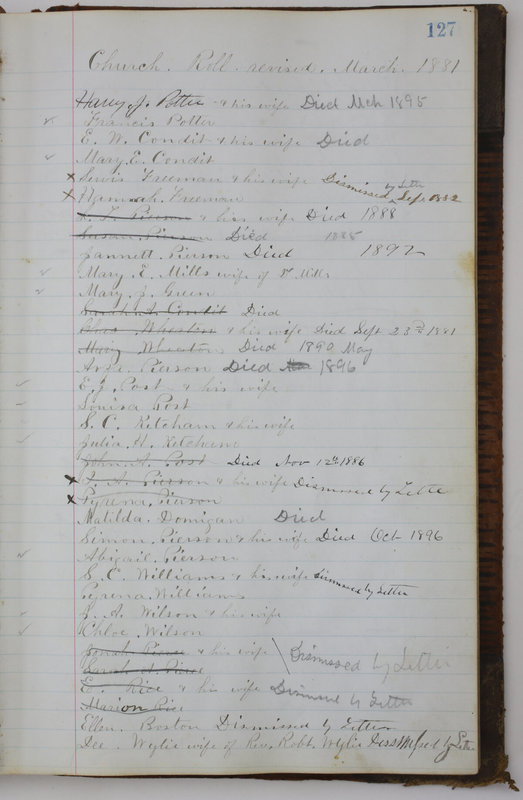 127
Church Roll revised. March. 1881
Harry. J. Potter & his wife Died Mch 1895
Francis Potter
E. W. Condit & his wife Died
Mary. E. Condit
Lewis Freeman & his wife Dismissed by Letter Sept 1882
Freeman
Pierson & his wife Died 1888
Susan. Pierson Died 1885
Jannett. Pierson Died 1892
Mary. E. Mills wife of Dr Mills
Mary. J. Green
Sarah A. Condit Died
Chas Wheaton & his wife Died Sept 23rd 1881
Mary Wheaton Died 1890 May
Pierson Died 1896
E. J. Post & his wife
Louisa Post
S. C. Ketcham & his wife
Julia. H. Ketcham
John. A. Post Died Nov 12th 1886
J. A. Pierson & his wife Dismissed by Letter
Pyrena. Pierson
Matilda. Domigan Died
Simon. Pierson & his wife Died Oct 1896
Abigail. Pierson
S. C. Williams & his wife Dismissed by Letter
Pyrena. Williams
J. A. Wilson & his wife
Chloe. Wilson
& his wife Dismissed by Letter
Sarah A.
E. Rice & his wife Dismissed by Letter
Marion Rice
Ellen. Boston Dismissed by Letter
Dee. Wylie wife of Rev. Robt. Wylie Dissmissed by Letter